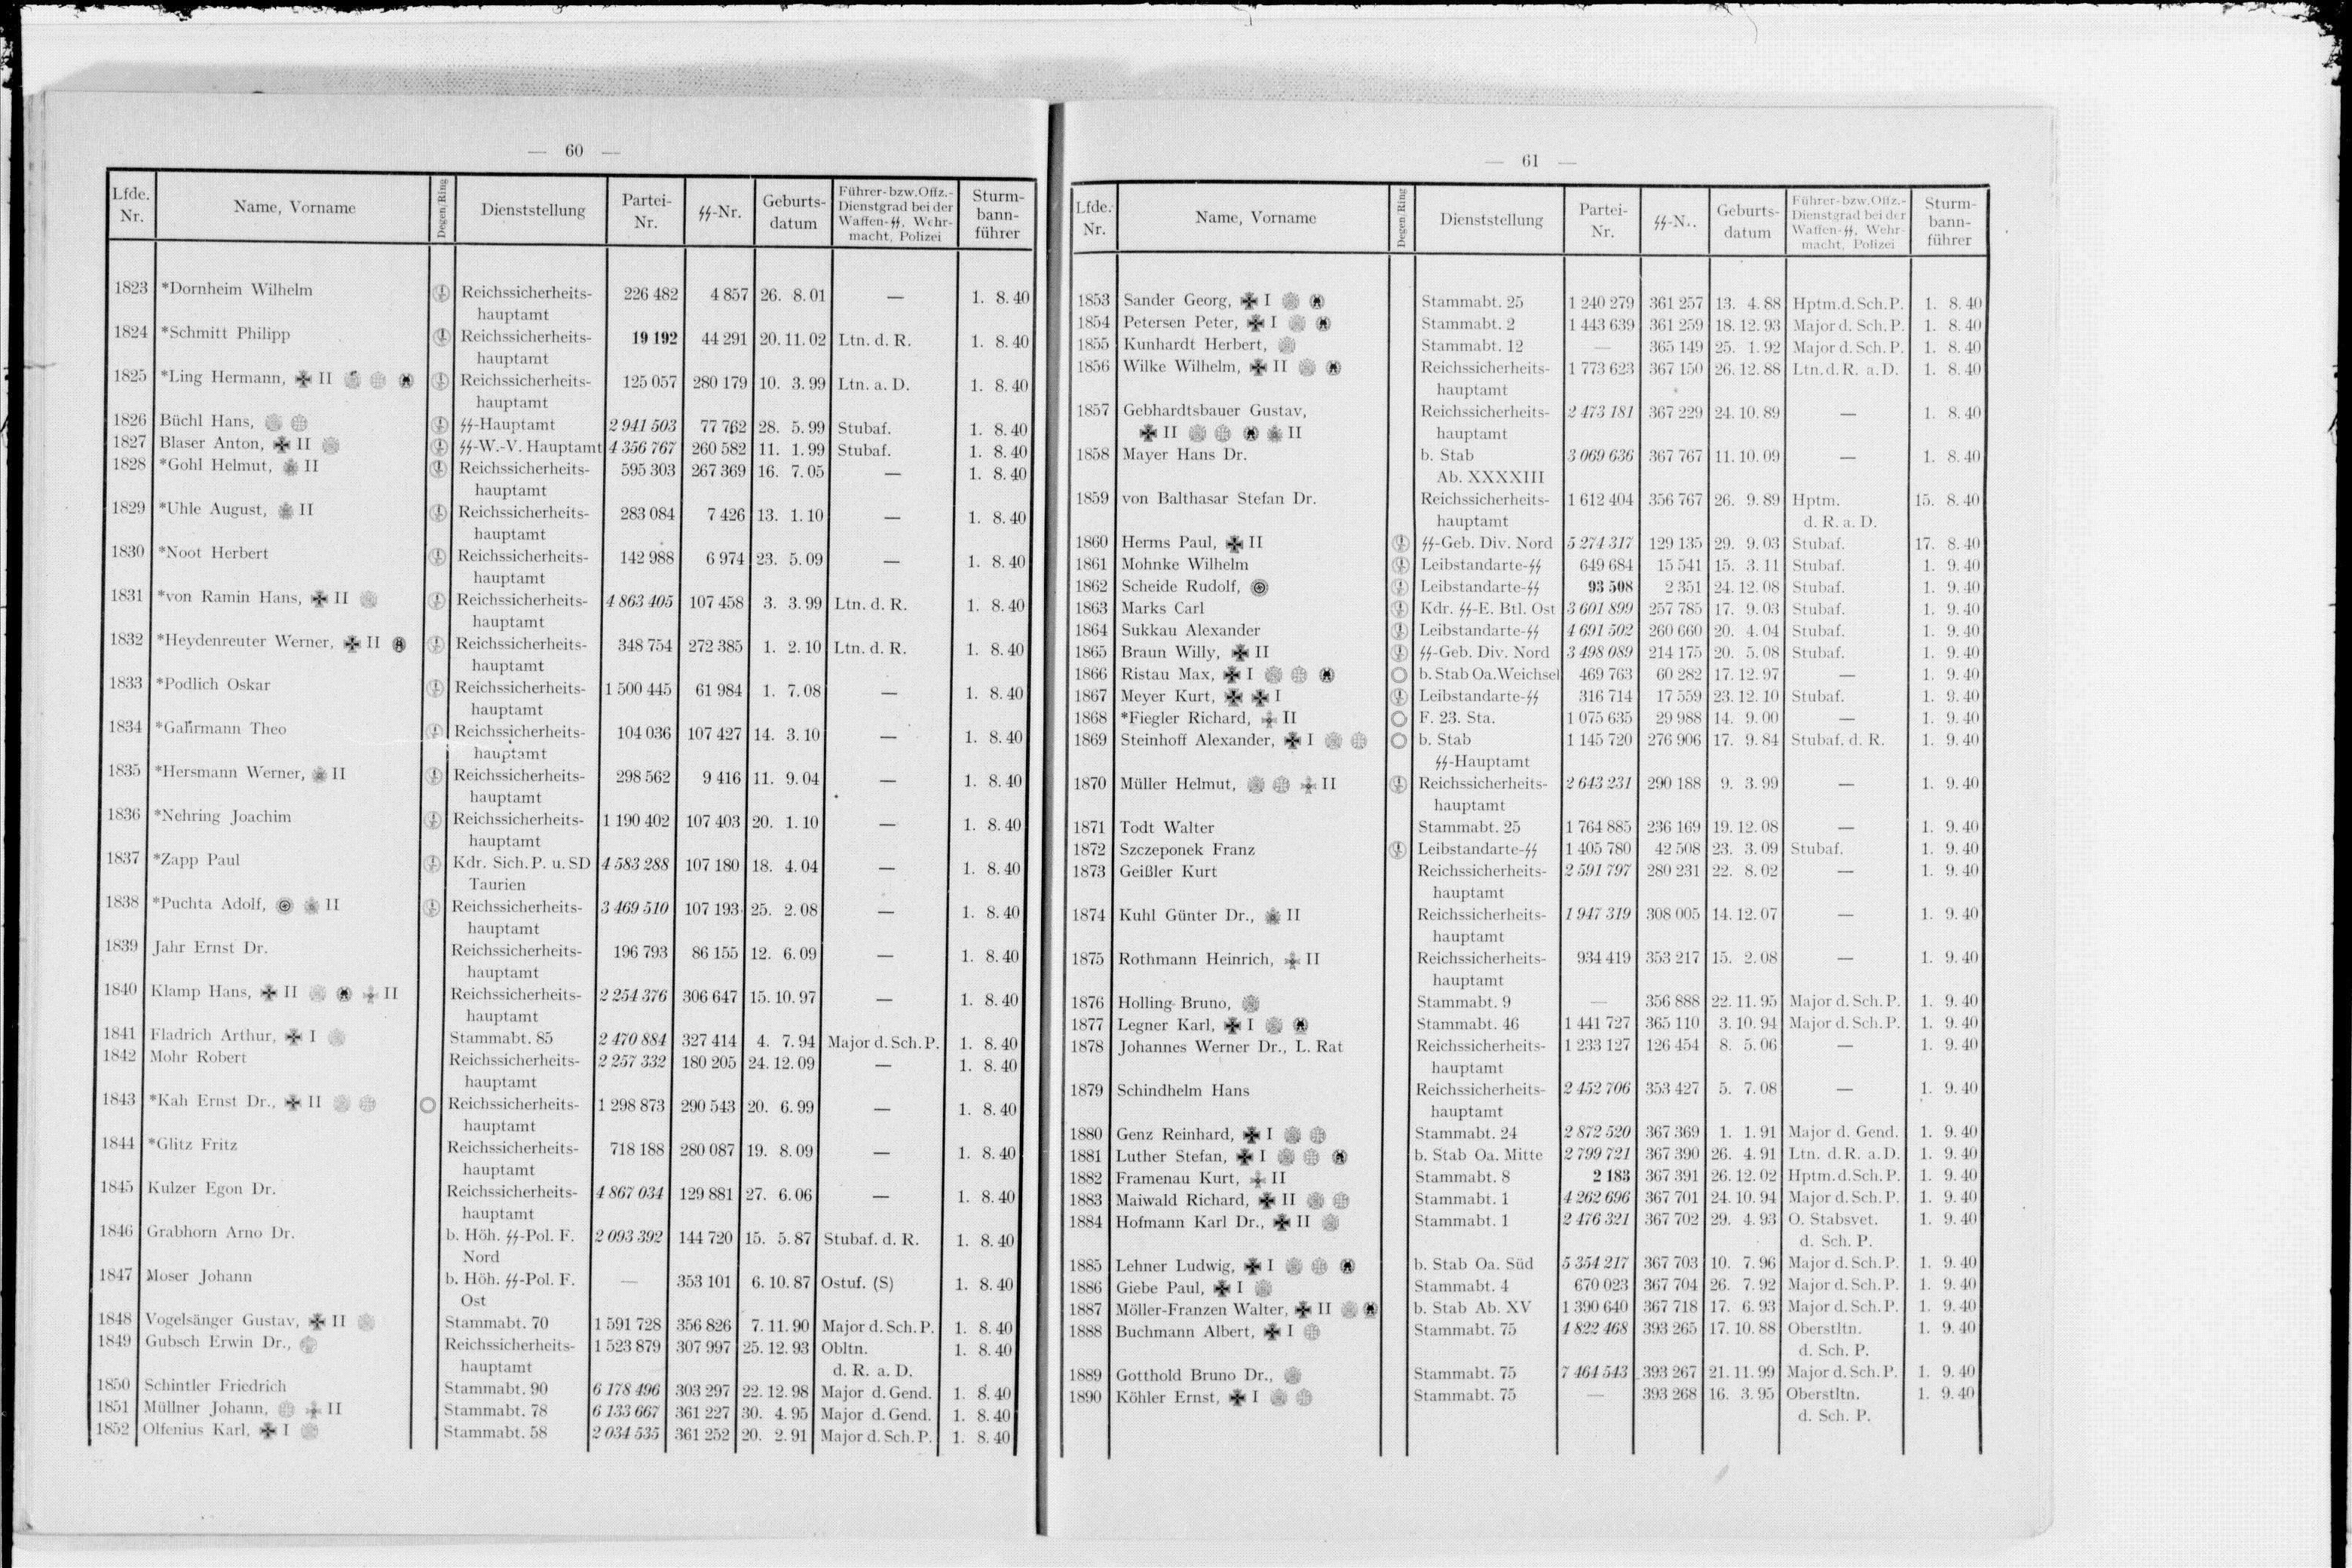 — 60 —
Lfde. Nr. Name, Vorname Degen/Ring Dienststellung Partei-Nr. ϟϟ-Nr. Geburts-datum Führer- bzw. Offz.-Dienstgrad bei der Waffen-ϟϟ, Wehr-macht, Polizei Sturm-bann-führer
1823 *Dornheim Wilhelm Reichssicherheits- 226 482 4 857 26. 8. 01 — 1. 8. 40
hauptamt
1824 *Schmitt Philipp Reichssicherheits- 19 192 44 291 20. 11. 02 Ltn. d. R. 1. 8. 40
hauptamt
1825 *Ling Hermann, ✠ II Reichssicherheits- 125 057 280 179 10. 3. 99 Ltn. a. D. 1. 8. 40
hauptamt
1826 Büchl Hans, ϟϟ-Hauptamt 2 941 503 77 762 28. 5. 99 Stubaf. 1. 8. 40
1827 Blaser Anton, ✠ II ϟϟ-W.-V. Hauptamt 4 356 767 260 582 11. 1. 99 Stubaf. 1. 8. 40
1828 *Gohl Helmut, II Reichssicherheits- 595 303 267 369 16. 7. 05 — 1. 8. 40
hauptamt
1829 *Uhle August, II Reichssicherheits- 283 084 7 426 13. 1. 10 — 1. 8. 40
hauptamt
1830 *Noot Herbert Reichssicherheits- 142 988 6 974 23. 5. 09 — 1. 8. 40
hauptamt
1831 *von Ramin Hans, ✠ II Reichssicherheits- 4 863 405 107 458 3. 3. 99 Ltn. d. R. 1. 8. 40
hauptamt
1832 *Heydenreuter Werner, ✠ II Reichssicherheits- 348 754 272 385 1. 2. 10 Ltn. d. R. 1. 8. 40
hauptamt
1833 *Podlich Oskar Reichssicherheits- 1 500 445 61 984 1. 7. 08 — 1. 8. 40
hauptamt
1834 *Gahrmann Theo Reichssicherheits- 104 036 107 427 14. 3. 10 — 1. 8. 40
hauptamt
1835 *Hersmann Werner, II Reichssicherheits- 298 562 9 416 11. 9. 04 — 1. 8. 40
hauptamt
1836 *Nehring Joachim Reichssicherheits- 1 190 402 107 403 20. 1. 10 — 1. 8. 40
hauptamt
1837 *Zapp Paul Kdr. Sich. P. u. SD 4 583 288 107 180 18. 4. 04 — 1. 8. 40
Taurien
1838 *Puchta Adolf, II Reichssicherheits- 3 469 510 107 193 25. 2. 08 — 1. 8. 40
hauptamt
1839 Jahr Ernst Dr. Reichssicherheits- 196 793 86 155 12. 6. 09 — 1. 8. 40
hauptamt
1840 Klamp Hans, ✠ II II Reichssicherheits- 2 254 376 306 647 15. 10. 97 — 1. 8. 40
hauptamt
1841 Fladrich Arthur, ✠ I Stammabt. 85 2 470 884 327 414 4. 7. 94 Major d. Sch. P. 1. 8. 40
1842 Mohr Robert Reichssicherheits- 2 257 332 180 205 24. 12. 09 — 1. 8. 40
hauptamt
1843 *Kah Ernst Dr., ✠ II Reichssicherheits- 1 298 873 290 543 20. 6. 99 — 1. 8. 40
hauptamt
1844 *Glitz Fritz Reichssicherheits- 718 188 280 087 19. 8. 09 — 1. 8. 40
hauptamt
1845 Kulzer Egon Dr. Reichssicherheits- 4 867 034 129 881 27. 6. 06 — 1. 8. 40
hauptamt
1846 Grabhorn Arno Dr. b. Höh. ϟϟ-Pol. F. 2 093 392 144 720 15. 5. 87 Stubaf. d. R. 1. 8. 40
Nord
1847 Moser Johann b. Höh. ϟϟ-Pol. F. — 353 101 6. 10. 87 Ostuf. (S) 1. 8. 40
Ost
1848 Vogelsänger Gustav, ✠ II Stammabt. 70 1 591 728 356 826 7. 11. 90 Major d. Sch. P. 1. 8. 40
1849 Gubsch Erwin Dr., Reichssicherheits- 1 523 879 307 997 25. 12. 93 Obltn. 1. 8. 40
hauptamt d. R. a. D.
1850 Schintler Friedrich Stammabt. 90 6 178 496 303 297 22. 12. 98 Major d. Gend. 1. 8. 40
1851 Müllner Johann, II Stammabt. 78 6 133 667 361 227 30. 4. 95 Major d. Gend. 1. 8. 40
1852 Olfenius Karl, ✠ I Stammabt. 58 2 034 535 361 252 20. 2. 91 Major d. Sch. P. 1. 8. 40
— 61 —
Lfde. Nr. Name, Vorname Degen/Ring Dienststellung Partei-Nr. ϟϟ-N.. Geburts-datum Führer- bzw. Offz.-Dienstgrad bei der Waffen-ϟϟ, Wehr-macht, Polizei Sturm-bann-führer
1853 Sander Georg, ✠ I Stammabt. 25 1 240 279 361 257 13. 4. 88 Hptm. d. Sch. P. 1. 8. 40
1854 Petersen Peter, ✠ I Stammabt. 2 1 443 639 361 259 18. 12. 93 Major d. Sch. P. 1. 8. 40
1855 Kunhardt Herbert, Stammabt. 12 — 365 149 25. 1. 92 Major d. Sch. P. 1. 8. 40
1856 Wilke Wilhelm, ✠ II Reichssicherheits- 1 773 623 367 150 26. 12. 88 Ltn. d. R. a. D. 1. 8. 40
hauptamt
1857 Gebhardtsbauer Gustav, Reichssicherheits- 2 473 181 367 229 24. 10. 89 — 1. 8. 40
✠ II II hauptamt
1858 Mayer Hans Dr. b. Stab 3 069 636 367 767 11. 10. 09 — 1. 8. 40
Ab. XXXXIII
1859 von Balthasar Stefan Dr. Reichssicherheits- 1 612 404 356 767 26. 9. 89 Hptm. 15. 8. 40
hauptamt d. R. a. D.
1860 Herms Paul, ✠ II ϟϟ-Geb. Div. Nord 5 274 317 129 135 29. 9. 03 Stubaf. 17. 8. 40
1861 Mohnke Wilhelm Leibstandarte-ϟϟ 649 684 15 541 15. 3. 11 Stubaf. 1. 9. 40
1862 Scheide Rudolf, Leibstandarte-ϟϟ 93 508 2 351 24. 12. 08 Stubaf. 1. 9. 40
1863 Marks Carl Kdr. ϟϟ-E. Btl. Ost 3 601 899 257 785 17. 9. 03 Stubaf. 1. 9. 40
1864 Sukkau Alexander Leibstandarte-ϟϟ 4 691 502 260 660 20. 4. 04 Stubaf. 1. 9. 40
1865 Braun Willy, ✠ II ϟϟ-Geb. Div. Nord 3 498 089 214 175 20. 5. 08 Stubaf. 1. 9. 40
1866 Ristau Max, ✠ I b. Stab Oa. Weichsel 469 763 60 282 17. 12. 97 — 1. 9. 40
1867 Meyer Kurt, ✠ ✠ I Leibstandarte-ϟϟ 316 714 17 559 23. 12. 10 Stubaf. 1. 9. 40
1868 *Fiegler Richard, II F. 23. Sta. 1 075 635 29 988 14. 9. 00 — 1. 9. 40
1869 Steinhoff Alexander, ✠ I b. Stab 1 145 720 276 906 17. 9. 84 Stubaf. d. R. 1. 9. 40
ϟϟ-Hauptamt
1870 Müller Helmut, II Reichssicherheits- 2 643 231 290 188 9. 3. 99 — 1. 9. 40
hauptamt
1871 Todt Walter Stammabt. 25 1 764 885 236 169 19. 12. 08 — 1. 9. 40
1872 Szczeponek Franz Leibstandarte-ϟϟ 1 405 780 42 508 23. 3. 09 Stubaf. 1. 9. 40
1873 Geißler Kurt Reichssicherheits- 2 591 797 280 231 22. 8. 02 — 1. 9. 40
hauptamt
1874 Kuhl Günter Dr., II Reichssicherheits- 1 947 319 308 005 14. 12. 07 — 1. 9. 40
hauptamt
1875 Rothmann Heinrich, II Reichssicherheits- 934 419 353 217 15. 2. 08 — 1. 9. 40
hauptamt
1876 Holling Bruno, Stammabt. 9 — 356 888 22. 11. 95 Major d. Sch. P. 1. 9. 40
1877 Legner Karl, ✠ I Stammabt. 46 1 441 727 365 110 3. 10. 94 Major d. Sch. P. 1. 9. 40
1878 Johannes Werner Dr., L. Rat Reichssicherheits- 1 233 127 126 454 8. 5. 06 — 1. 9. 40
hauptamt
1879 Schindhelm Hans Reichssicherheits- 2 452 706 353 427 5. 7. 08 — 1. 9. 40
hauptamt
1880 Genz Reinhard, ✠ I Stammabt. 24 2 872 520 367 369 1. 1. 91 Major d. Gend. 1. 9. 40
1881 Luther Stefan, ✠ I b. Stab Oa. Mitte 2 799 721 367 390 26. 4. 91 Ltn. d. R. a. D. 1. 9. 40
1882 Framenau Kurt, II Stammabt. 8 2 183 367 391 26. 12. 02 Hptm. d. Sch. P. 1. 9. 40
1883 Maiwald Richard, ✠ II Stammabt. 1 4 262 696 367 701 24. 10. 94 Major d. Sch. P. 1. 9. 40
1884 Hofmann Karl Dr., ✠ II Stammabt. 1 2 476 321 367 702 29. 4. 93 O. Stabsvet. 1. 9. 40
d. Sch. P.
1885 Lehner Ludwig, ✠ I b. Stab Oa. Süd 5 354 217 367 703 10. 7. 96 Major d. Sch. P. 1. 9. 40
1886 Giebe Paul, ✠ I Stammabt. 4 670 023 367 704 26. 7. 92 Major d. Sch. P. 1. 9. 40
1887 Möller-Franzen Walter, ✠ II b. Stab Ab. XV 1 390 640 367 718 17. 6. 93 Major d. Sch. P. 1. 9. 40
1888 Buchmann Albert, ✠ I Stammabt. 75 4 822 468 393 265 17. 10. 88 Oberstltn. 1. 9. 40
d. Sch. P.
1889 Gotthold Bruno Dr., Stammabt. 75 7 464 543 393 267 21. 11. 99 Major d. Sch. P. 1. 9. 40
1890 Köhler Ernst, ✠ I Stammabt. 75 — 393 268 16. 3. 95 Oberstltn. 1. 9. 40
d. Sch. P.